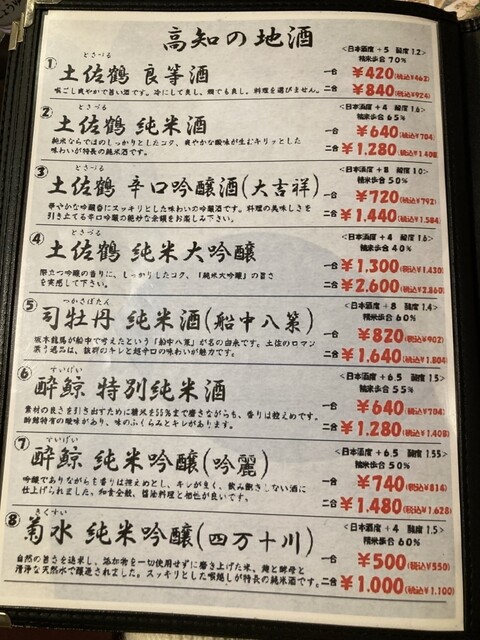 高知の地酒
<日本酒度 +5 酸度 1.2>
精米歩合 70%
①
とさづる
土佐鶴 良等酒
一合 ¥420(税込¥462)
喉ごし爽やかで旨い酒です。冷にして良し、燗でも良し、料理を選びません。
二合 ¥840(税込¥924)
<日本酒度 +4 酸度 1.6>
精米歩合 65%
②
とさづる
土佐鶴 純米酒
一合 ¥640(税込¥704)
純米ならではのしっかりとしたコク、爽やかな酸味が生むキリッとした
味わいが特長の純米酒です。
二合 ¥1,280(税込¥1,408)
<日本酒度 +8 酸度 1.0>
精米歩合 50%
③
とさづる
土佐鶴 辛口吟醸酒(大吉祥)
一合 ¥720(税込¥792)
華やかな吟醸香にスッキリとした味わいの吟醸酒です。料理の美味しさを
引き立てる辛口吟醸の絶妙な余韻をお楽しみ下さい。
二合 ¥1,440(税込¥1,584)
<日本酒度 +4 酸度 1.6>
精米歩合 40%
④
とさづる
土佐鶴 純米大吟醸
一合 ¥1,300(税込¥1,430)
際立つ吟醸の香りに、しっかりしたコク、「純米大吟醸」の旨さ
を実感して下さい。
二合 ¥2,600(税込¥2,860)
<日本酒度 +8 酸度 1.4>
精米歩合 60%
⑤
つかさぼたん
司牡丹 純米酒(船中八策)
一合 ¥820(税込¥902)
坂本龍馬が船中で考えたという「船中八策」が名の由来です。土佐のロマン
漂う逸品は、抜群のキレと超辛口の味わいが魅力です。
二合 ¥1,640(税込¥1,804)
<日本酒度 +6.5 酸度 1.5>
精米歩合 55%
⑥
すいげい
酔鯨 特別純米酒
一合 ¥640(税込¥704)
素材の良さを引き出すために麹米を55%まで磨きながらも、香りは控えめです。
酔鯨特有の酸味があり、味のふくらみとキレがあります。
二合 ¥1,280(税込¥1,408)
<日本酒度 +6.5 酸度 1.55>
精米歩合 50%
⑦
すいげい
酔鯨 純米吟醸(吟麗)
一合 ¥740(税込¥814)
吟醸でありながらも香りは控えめとし、キレが良く、飲み飽きしない酒に
仕上げられました。和食全般、醤油料理と相性が良いです。
二合 ¥1,480(税込¥1,628)
<日本酒度 +4 酸度 1.5>
精米歩合 60%
⑧
きくすい
菊水 純米吟醸(四万十川)
一合 ¥500(税込¥550)
自然の旨さを追求し、添加物を一切使用せずに磨き上げた米、麹と酵母と
清浄な天然水で醸造されました。スッキリとした喉越しが特長の純米酒です。
二合 ¥1,000(税込¥1,100)